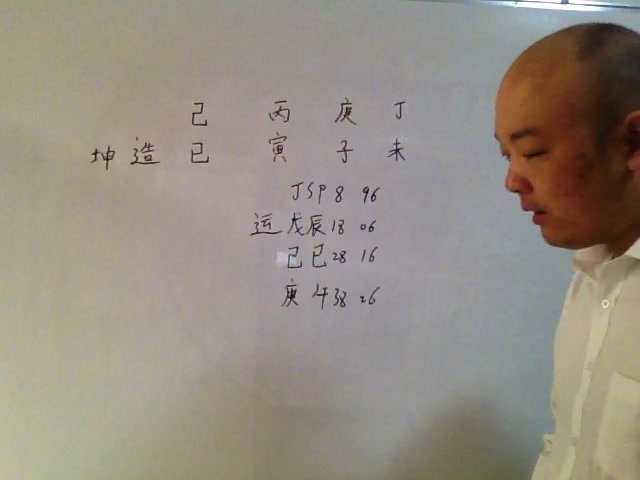 己 丙 庚 丁
坤造 巳 寅 子 未
JSP 8 96
运 戊辰 18 06
己巳 28 16
庚午 38 26